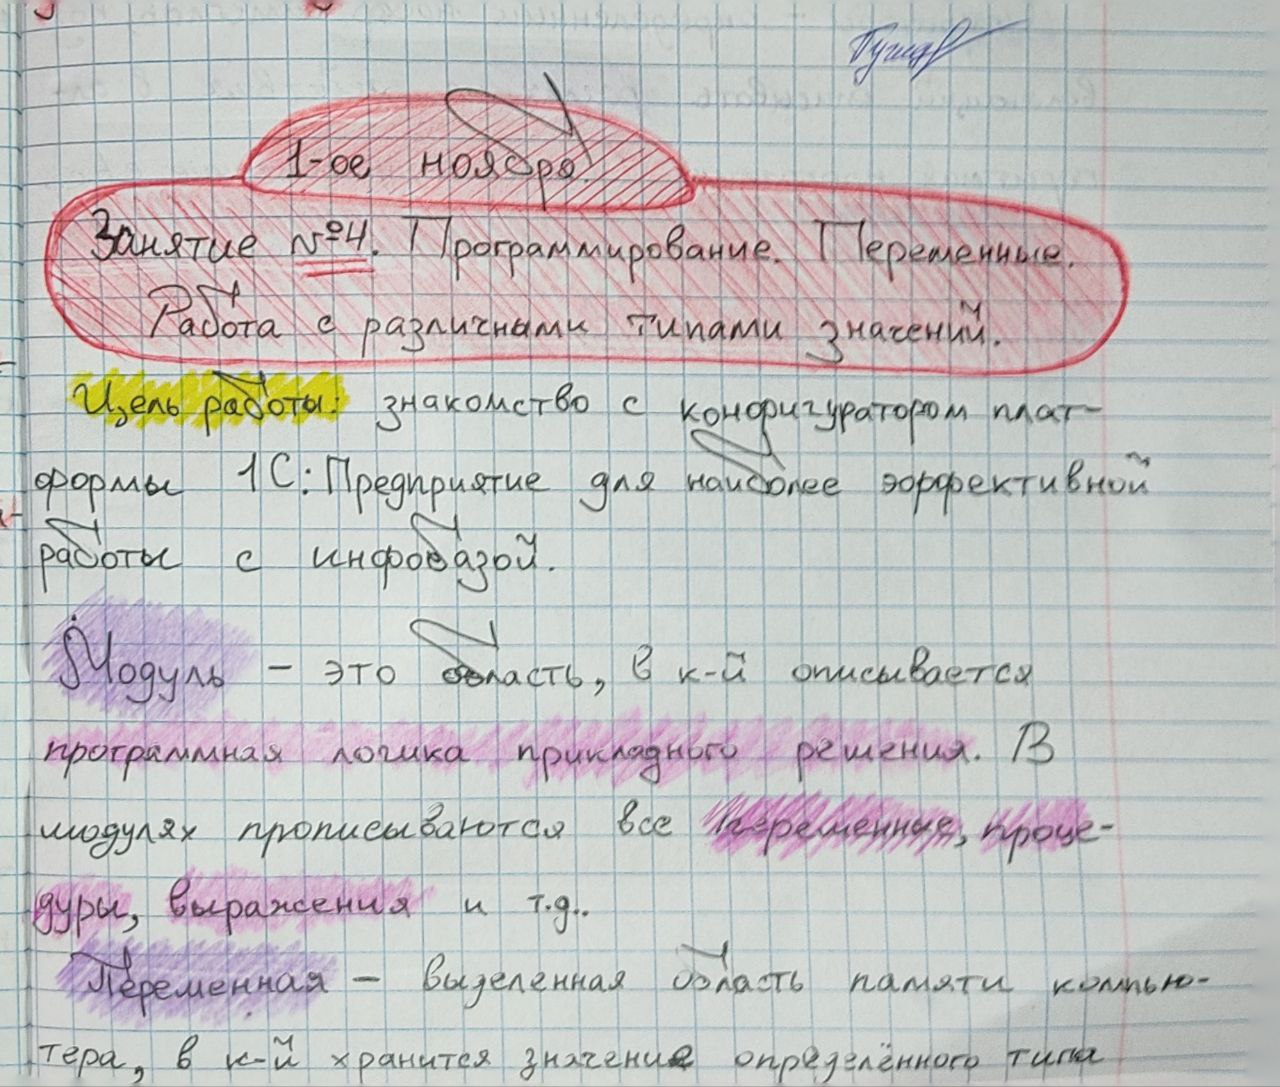 1-ое ноября.
Занятие №4. Программирование. Переменные.
Работа с различными типами значений.
Цель работы: знакомство с конфигуратором плат-
формы 1С: Предприятие для наиболее эффективной
работы с инфобазой.
Модуль – это область, в к-й описывается
программная логика прикладного решения. В
модулях прописываются все переменные, проце-
дуры, выражения и т.д..
Переменная – выделенная область памяти компью-
тера, в к-й хранится значение определённого типа